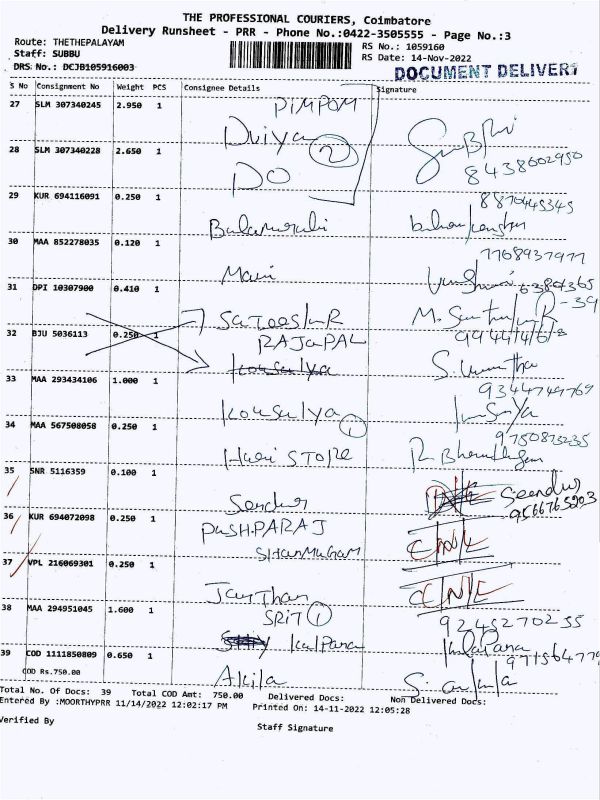 THE PROFESSIONAL COURIERS, Coimbatore
Delivery Runsheet - PRR - Phone No.:0422-3505555 - Page No.:3
Route: THETHEPALAYAM
Staff: SUBBU
DRS No.: DCJB105916003
RS No.: 1059160
RS Date: 14-Nov-2022
DOCUMENT DELIVERY
S No Consignment No Weight PCS Consignee Details Signature
27 SLM 307340245 2.950 1 PIMPOM
Duiya
28 SLM 307340228 2.650 1 2
DO 8438602950
29 KUR 694116091 0.250 1 8870445345
Balamurubi
30 MAA 852278035 0.120 1
Mani
31 DPI 10307900 0.410 1
32 BJU 5036113 0.250 1
RAJAPAL
33 MAA 293434106 1.000 1 Kousalya
9344749769
Kousalya
34 MAA 567508058 0.250 1 1
9750873235
Hari STORE
35 SNR 5116359 0.100 1
Sendur Seendur
9566765203
36 KUR 694072098 0.250 1 PUSHPARAJ
SHANMUGAM
37 VPL 216069301 0.250 1
38 MAA 294951045 1.600 1 1
9245270255
Kalpana
39 COD 1111850809 0.650 1
COD Rs.750.00 Akila
Total No. Of Docs: 39 Total COD Amt: 750.00 Delivered Docs: Non Delivered Docs:
Entered By :MOORTHYPRR 11/14/2022 12:02:17 PM Printed On: 14-11-2022 12:05:28
Verified By
Staff Signature